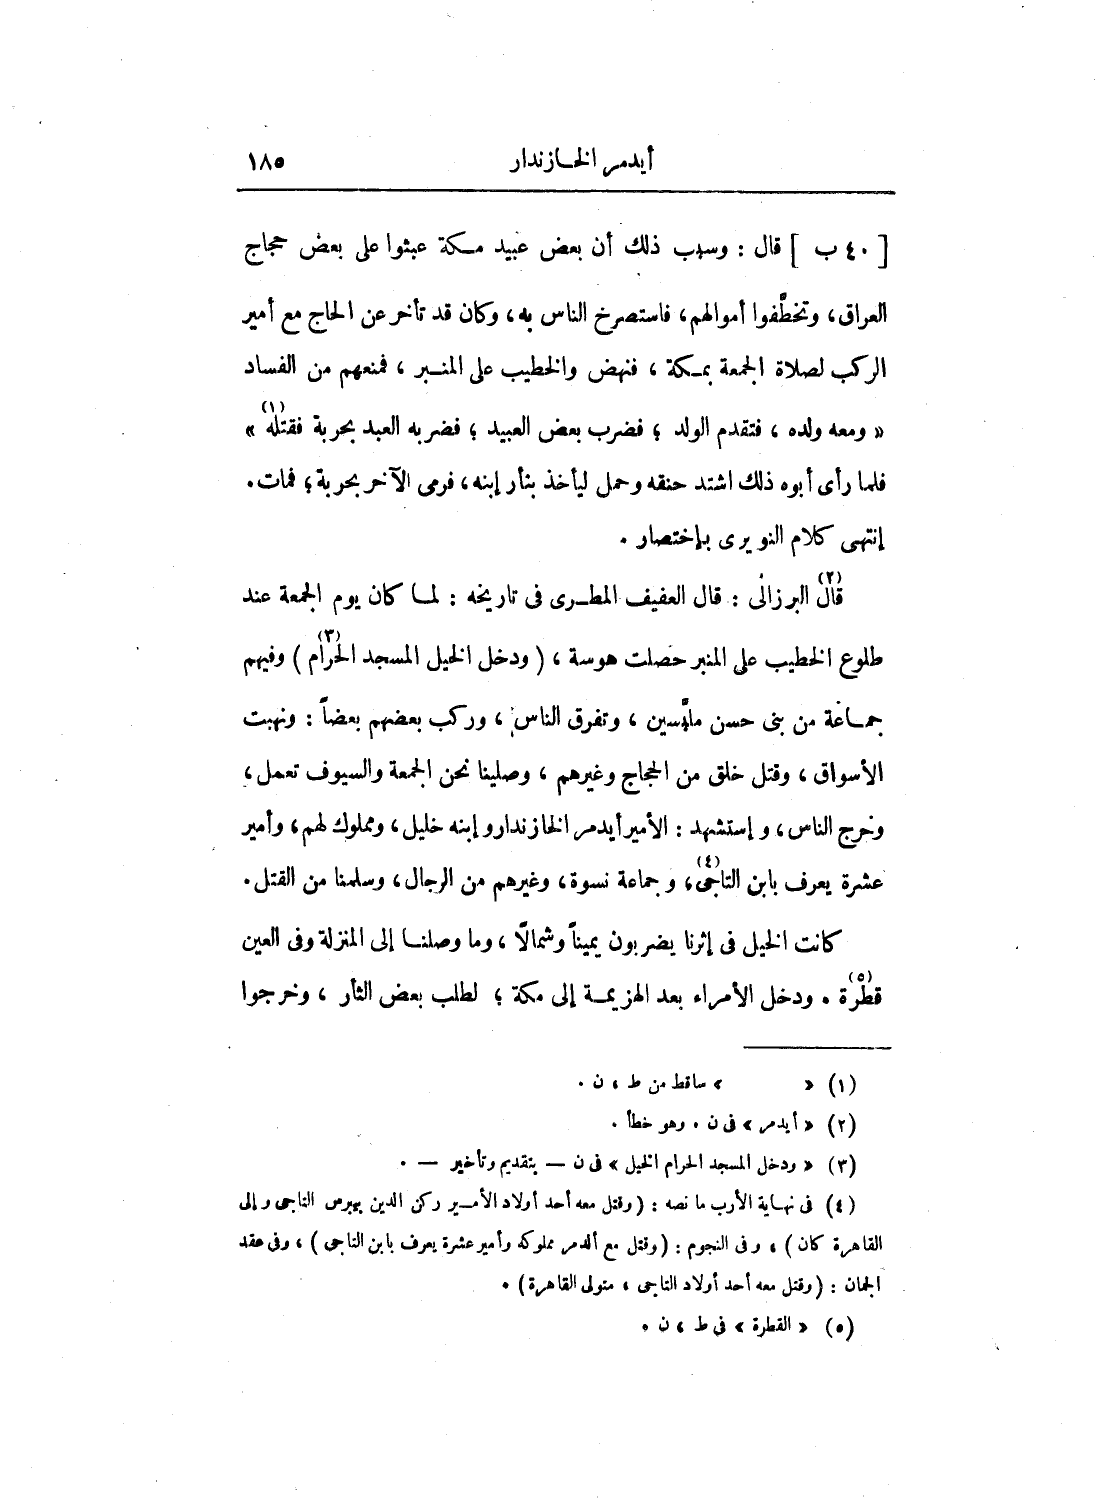 أيدمر الخازندار ١٨٥
[ ٤٠ ب ] قال : وسبب ذلك أن بعض عبيد مكة عبثوا على بعض حجاج
العراق ، وتخطَّفوا أموالهم ، فاستصرخ الناس به ، وكان قد تأخر عن الحاج مع أمير
الركب لصلاة الجمعة بمكة ، فنهض والخطيب على المنبر ، فمنعهم من الفساد
« ومعه ولده ، فتقدم الولد ؛ فضرب بعض العبيد ؛ فضربه العبد بحربة فقتله (١) »
فلما رأى أبوه ذلك اشتد حنقه وحمل ليأخذ بثأر إبنه ، فرمى الآخر بحربة ؛ فمات .
إنتهى كلام النويرى بإختصار .
قال (٢) البرزالى : قال العفيف المطرى فى تاريخه : لما كان يوم الجمعة عند
طلوع الخطيب على المنبر حصلت هوسة ، ( ودخل الخيل المسجد الحرام (٣) ) وفيهم
جماعة من بنى حسن ملبَّسين ، وتفرق الناس ، وركب بعضهم بعضاً : ونهبت
الأسواق ، وقتل خلق من الحجاج وغيرهم ، وصلينا نحن الجمعة والسيوف تعمل ،
وخرج الناس ، وإستشهد : الأمير أيدمر الخازندار وإبنه خليل ، ومملوك لهم ، وأمير
عشرة يعرف بابن التاجى (٤) ، وجماعة نسوة ، وغيرهم من الرجال ، وسلمنا من القتل .
كانت الخيل فى إثرنا يضربون يميناً وشمالًا ، وما وصلنا إلى المنزلة وفى العين
قطرة (٥) . ودخل الأمراء بعد الهزيمة إلى مكة ؛ لطلب بعض الثأر ، وخرجوا
(١) « » ساقط من ط ، ن .
(٢) « أيدمر » فى ن . وهو خطأ .
(٣) « ودخل المسجد الحرام الخيل » فى ن — بتقديم وتأخير — .
(٤) فى نهاية الأرب ما نصه : ( وقتل معه أحد أولاد الأمير ركن الدين بيبرس التاجى والى
القاهرة كان ) ، وفى النجوم : ( وقتل مع ألدمر مملوكه وأمير عشرة يعرف بابن التاجى ) ، وفى عقد
الجمان : ( وقتل معه أحد أولاد التاجى ، متولى القاهرة ) .
(٥) « القطرة » فى ط ، ن .